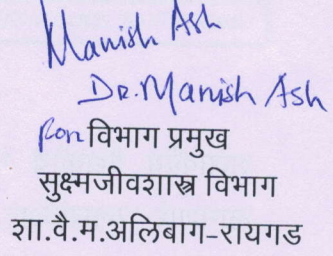 Manish Ash
Dr. Manish Ash
For विभाग प्रमुख
सुक्ष्मजीवशास्त्र विभाग
शा.वै.म.अलिबाग-रायगड